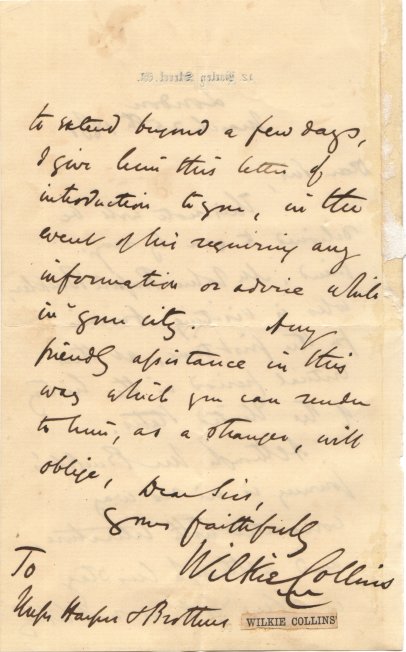 to extend beyond a few days,
I give him this letter of
introduction to you, in the
event of his requiring any
information or advice while
in your city. Any
friendly assistance in this
way which you can render
to him, as a stranger, will
oblige,
Dear Sirs,
Yours faithfully
Wilkie Collins
To
Messrs Harper & Brothers
WILKIE COLLINS